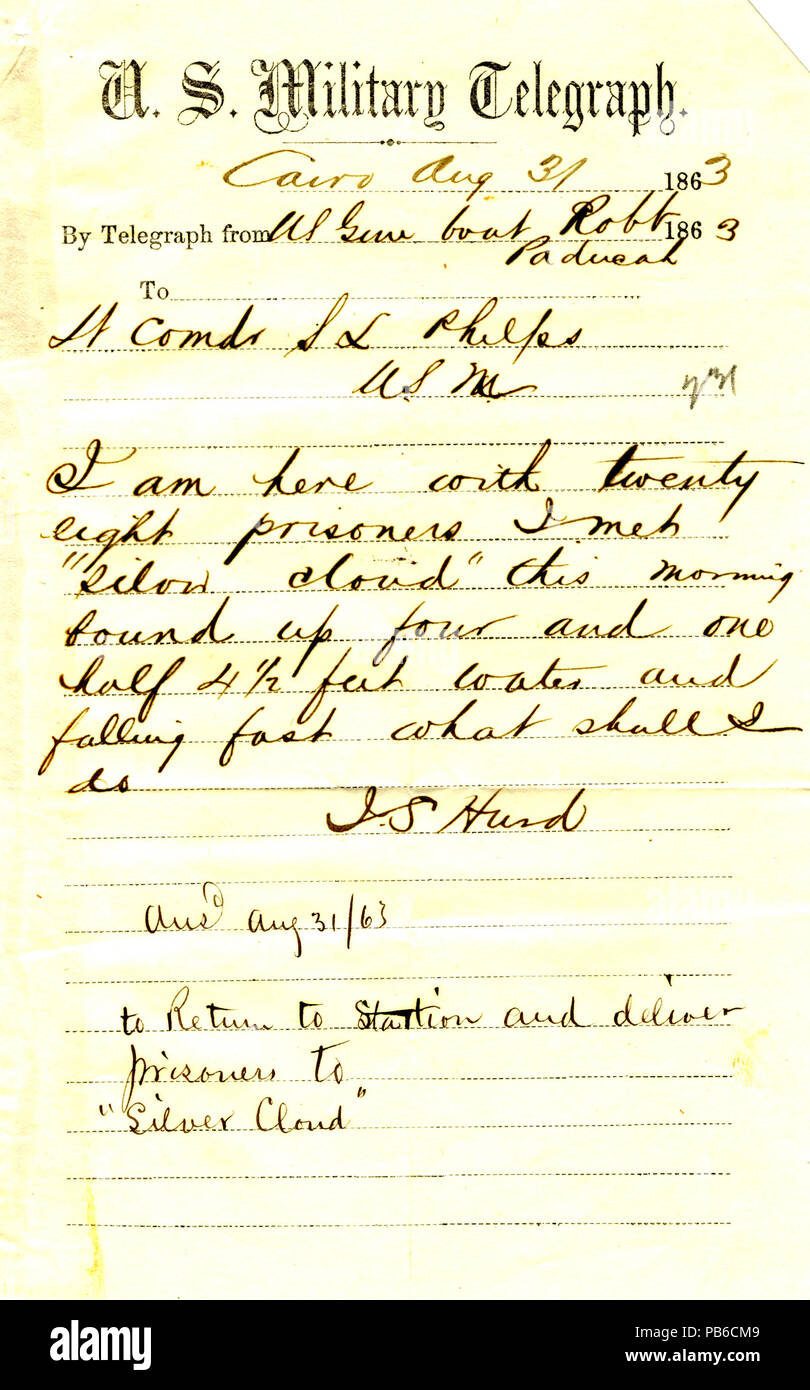 U. S. Military Telegraph.
Cairo Aug 31 1863
By Telegraph from US Gun boat Robb 1863
Paducah
To
Lt Comdr S L Phelps
U.S.
I am here with twenty
eight prisoners I met
"Silow cloud" this morning
bound up four and one
half 4 1/2 feet water and
falling fast what shall I
do
J.S Hurd
Ansd Aug 31/63
to Return to Station and deliver
prisoners to
"Silver Cloud"
alamy
Image ID: PB6CM9
www.alamy.com